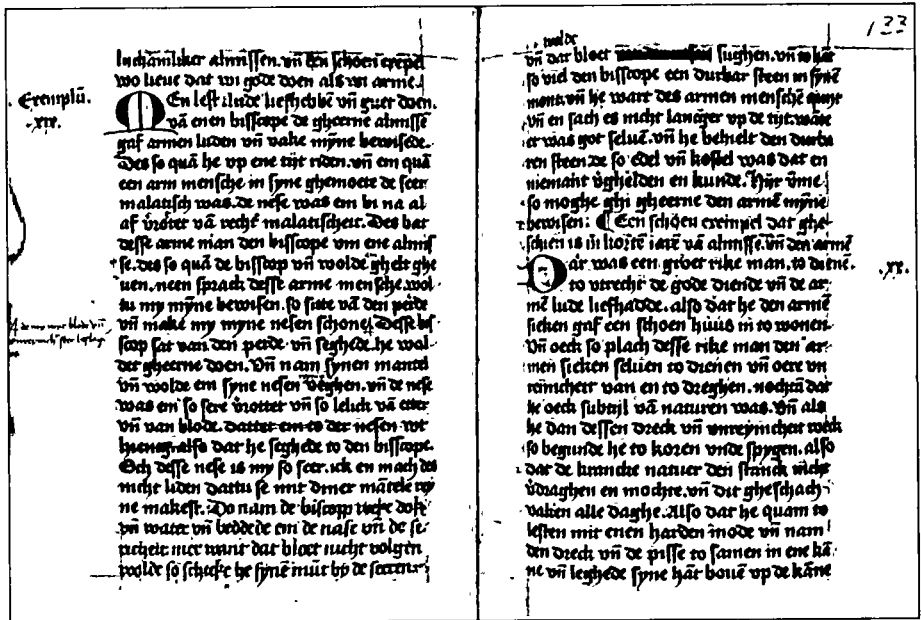 lichamliker almissen. vn̄ den schoen exepel
wo lieue dat wi gode doen als wi arme
Exemplū.
.xix.
MEn lest ilude liefhebbē vn̄ guet doen.
vā enen bisscope de gheerne almissē
gaf armen luden vn̄ vake mȳne bewisede.
Des so quā he vp ene tijt riden. vn̄ em quā
een arm mensche in syne ghemoete de seer
malatisch was. de nese was em bi na al
af v̄rotet vā rechtē malatischeit. Des bat
desse arme man den bisscope vm ene almis
se. des so quā de bisscop vn̄ wolde gh elt ghe
uen. neen sprack desse arme mensche. wol
tu my mȳne bewisen. so sitte vā den perde
vn̄ make my myne nesen schone. Desse bis
scop sat van den perde vn̄ seghede. he wol
det gheerne doen. Vn̄ nam synen mantel
vn̄ wolde em syne nesen v̄eghen. vn̄ de nese
was em so sere v̄rottet vn̄ so lelick vā etter
vn̄ van blode. dattet em to der nesen wt
hienc. also dat he seghede to den bisscope.
Och desse nese is my so seer. ick en mach des
nicht liden dattu se mit diner mātele rey
ne makest. Do nam de biscopp weke doke
vn̄ water vn̄ bedde de em de nase vn̄
nicht volgen
wolde so schicke he synē mūt by de
133
wolde
vn̄ dat bloet sughen. vn̄
so viel den bisscope een durbar steen in synē
mont. vn̄ he wart des armen menschē quijt
vn̄ en sach es nicht langer vp de tijt. wāte
et was got seluē. vn̄ he behielt den durba
ren steen. de so edel vn̄ kostel was dat en
niemant v̄ghelden en kunde. Hijr v̄me
so moghe ghi gheerne den armē mȳne
bewisen: ¶ Een schoen exempel dat ghe
schien is in kortē iarē vā almisse. vn̄ den armē
Dār was een groet rike man. to dienē.
.xx.
to vtrecht de gode diende vn̄ de ar
mē lude liefhadde. also dat he den armē
sieken gaf een schoen hūus in to wonen.
Vn̄ oeck so plach desse rike man den ar
men sieken seluen to dienen vn̄ oere vn
reinicheit van en to dreghen. nochtā dat
he oeck subtijl vā naturen was. Vn̄ als
he dan dessen dreck vn̄ vnreynicheit
so begunde he to koren vnde spygen. also
dat de krancke natuer den stanck nicht
v̄draghen en mochte. vn̄ dit gheschach
vaken alle daghe. Also dat he quam to
lesten mit enen harden mode vn̄ nam
den dreck vn̄ de pisse to samen in ene kā
ne vn̄ leghede syne hāt bouē vp de kāne